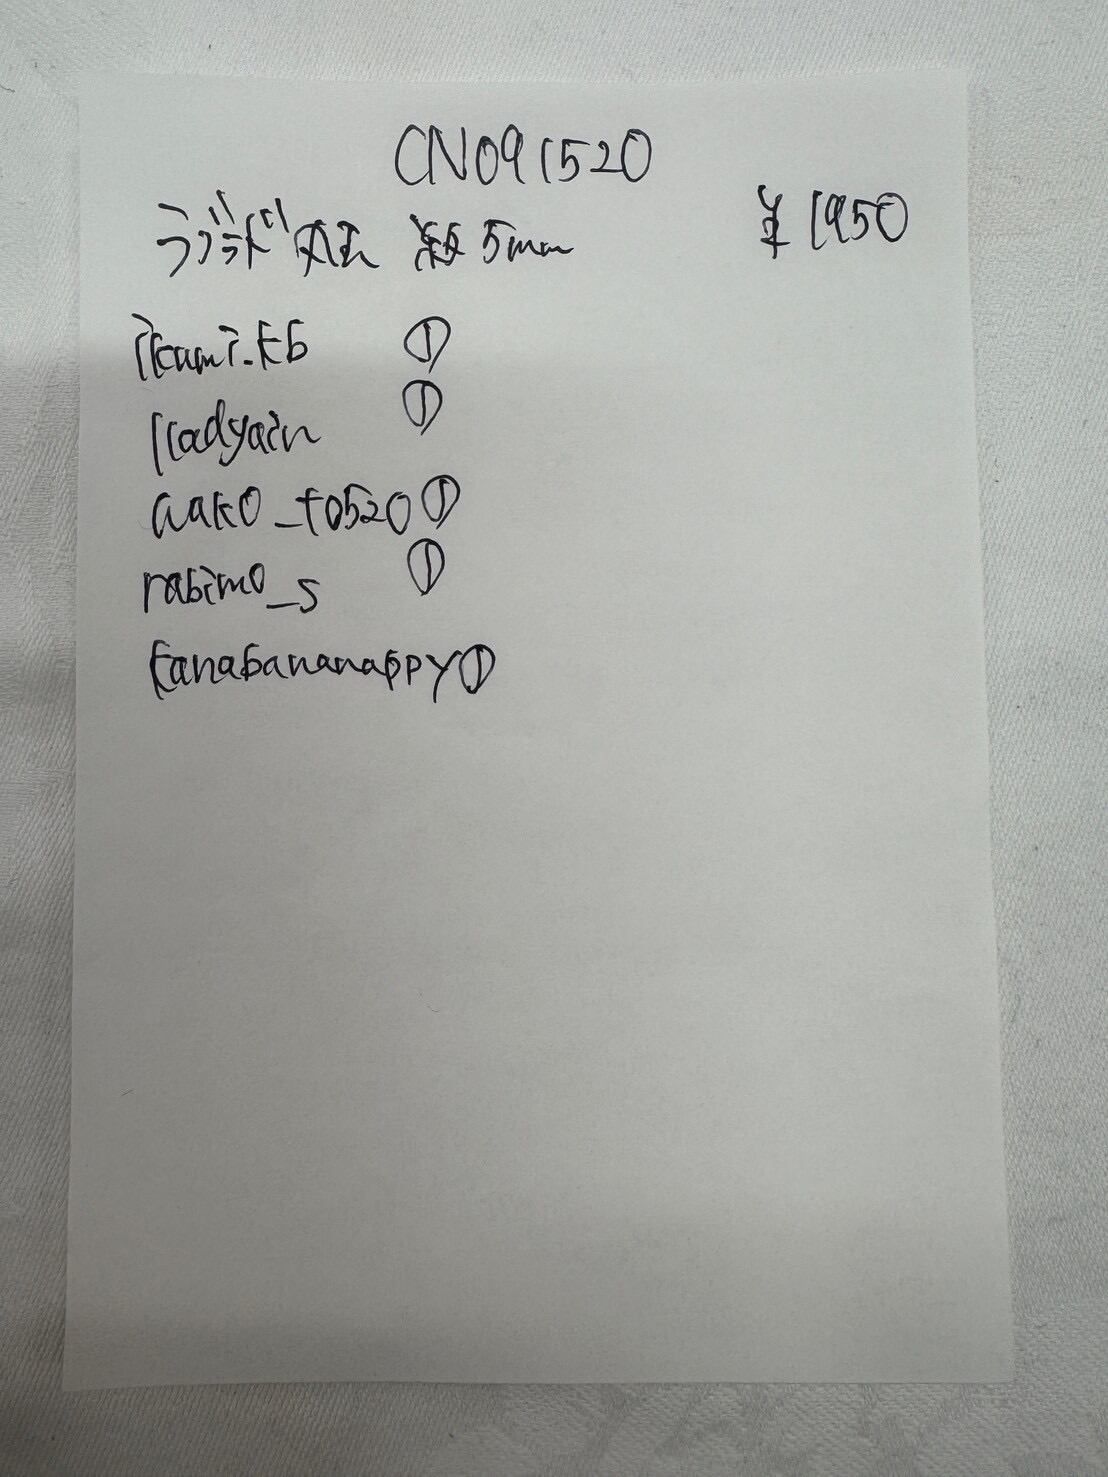 CN091520
ラブラド 丸玉 約5mm ¥1950
ikumi.kb ①
ladyain ①
aako_to520 ①
rabimo_s ①
kanabananappy ①